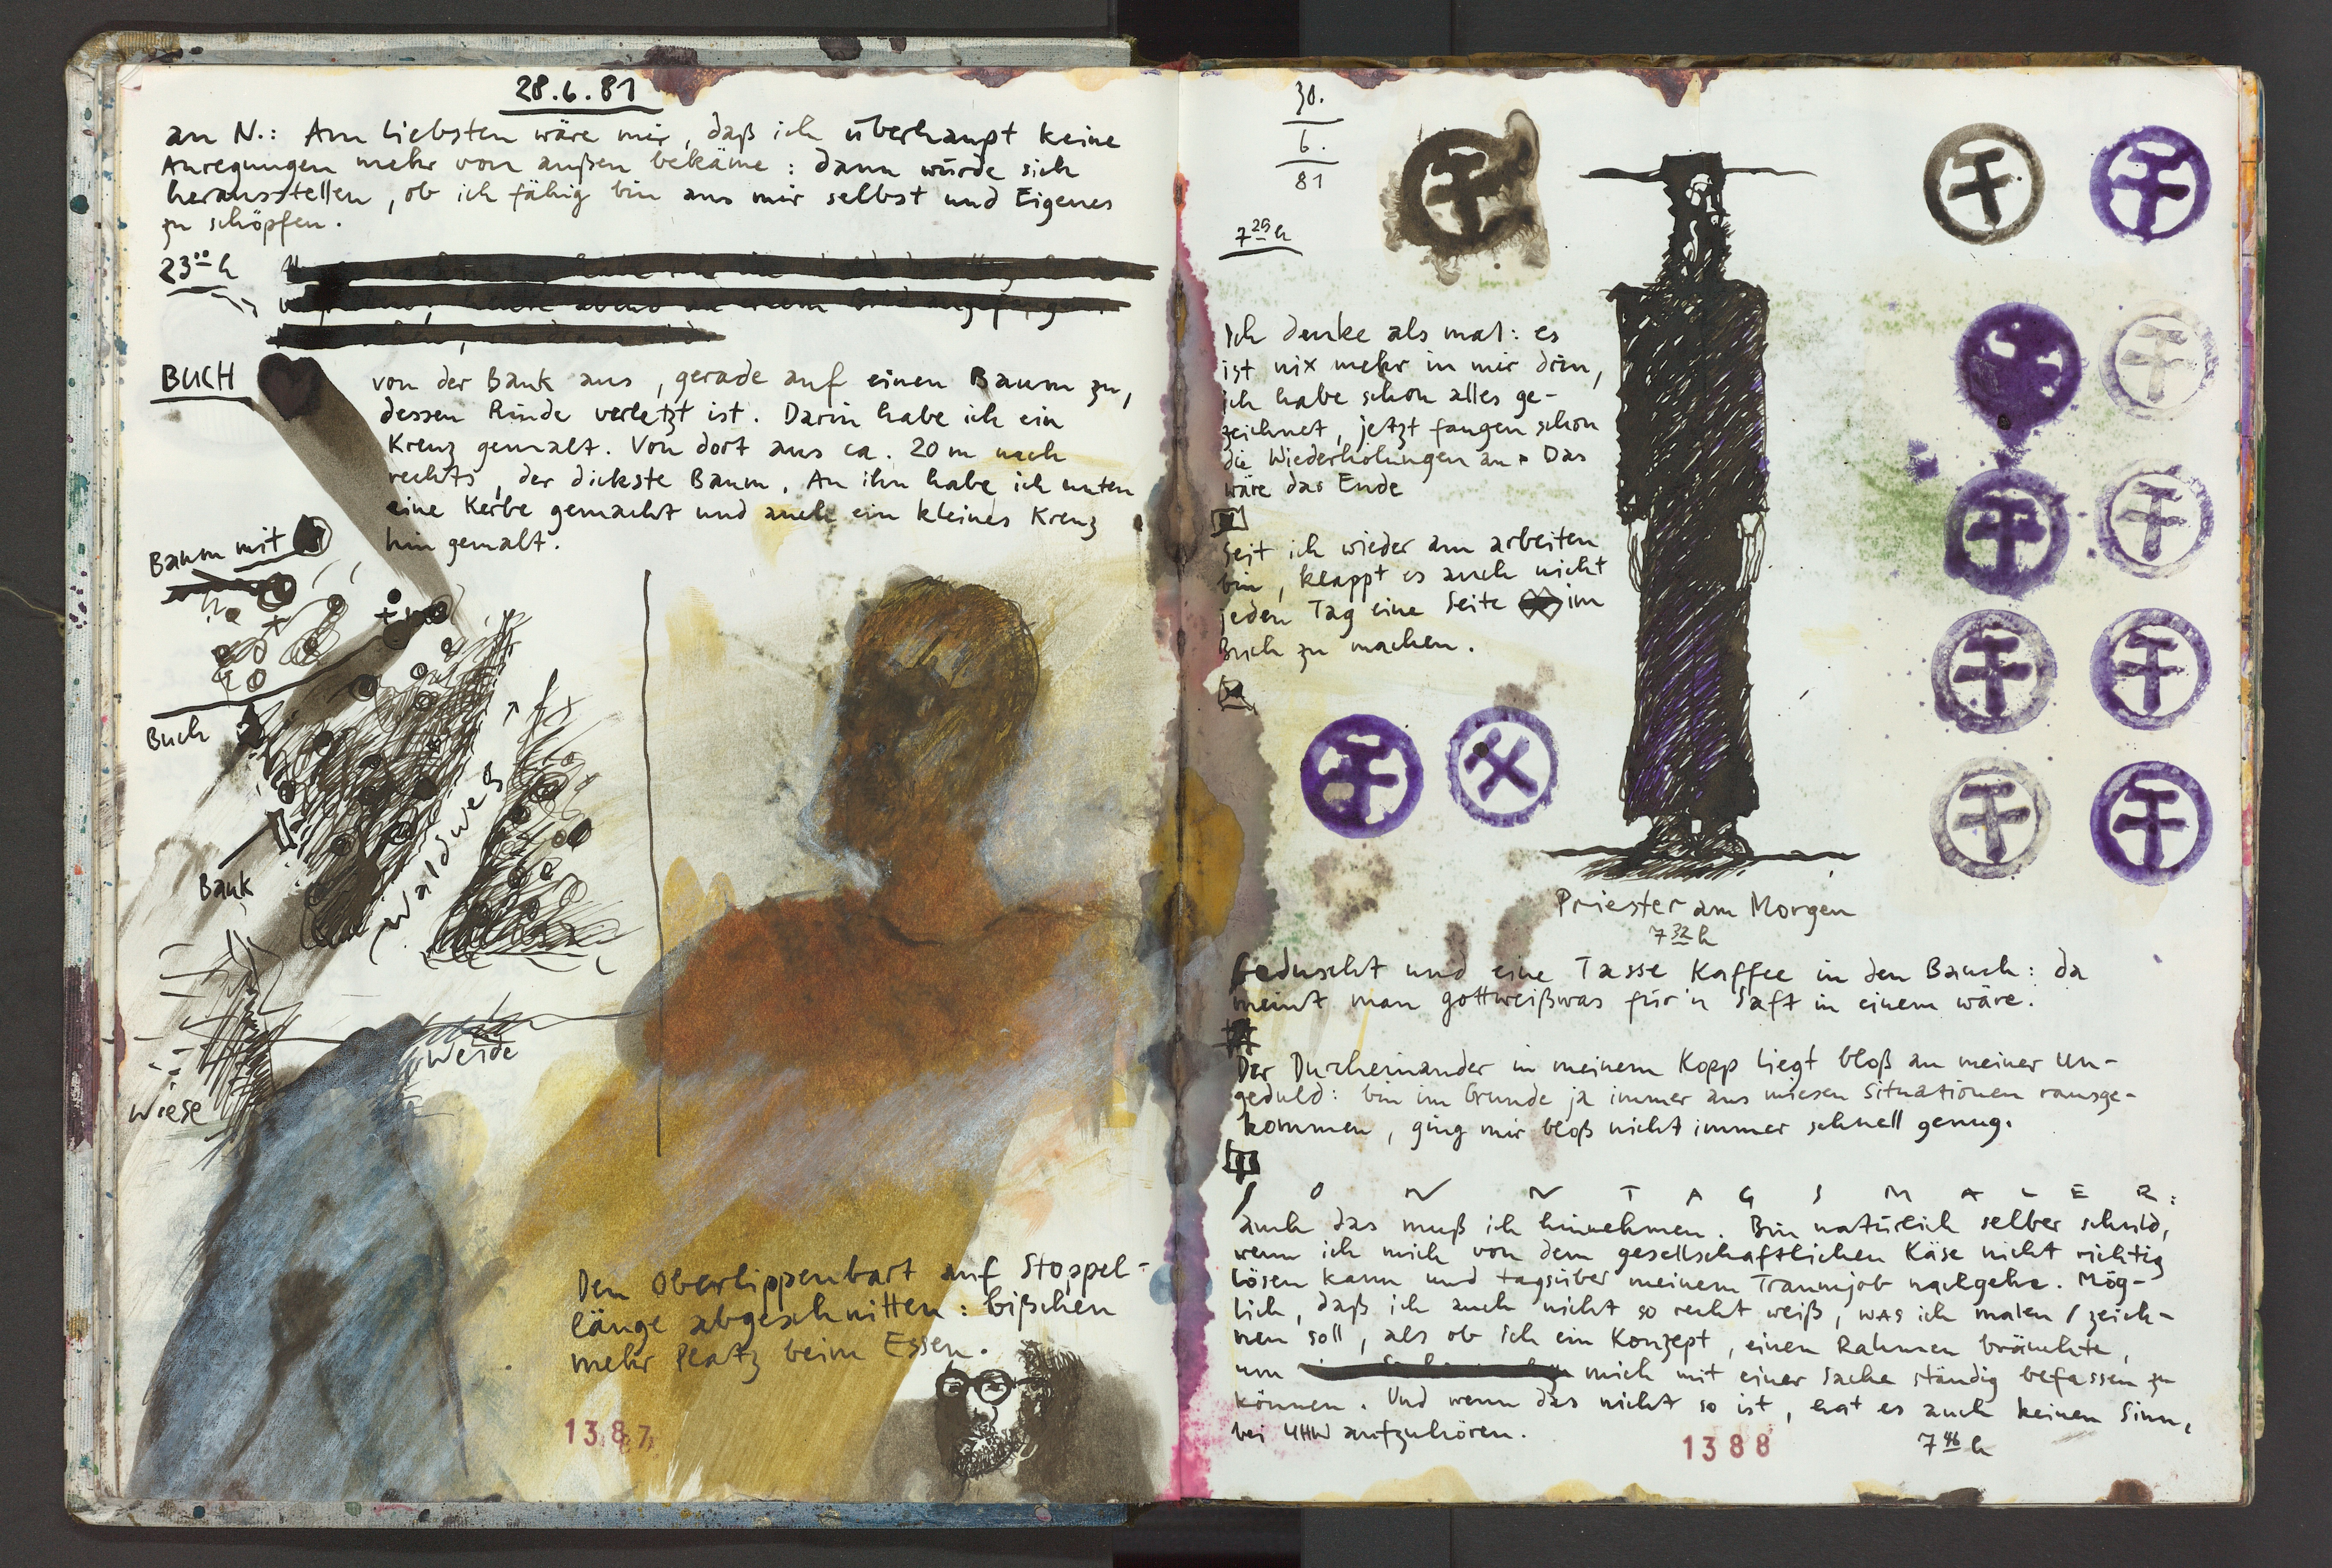 28.6.81
an N.: Am liebsten wäre mir, daß ich überhaupt keine
Anregungen mehr von außen bekäme: dann würde sich
herausstellen, ob ich fähig bin aus mir selbst und Eigenes
zu schöpfen.
23⁰⁰ h
BUCH
von der Bank aus, gerade auf einen Baum zu,
dessen Rinde verletzt ist. Darin habe ich ein
Kreuz gemalt. Von dort aus ca. 20 m nach
rechts, der dickste Baum. An ihn habe ich unten
eine Kerbe gemacht und auch ein kleines Kreuz
hin gemalt.
Baum mit
Buch
Waldweg
Bank
Weide
Wiese
Den Oberlippenbart auf Stoppel-
länge abgeschnitten: bißchen
mehr Platz beim Essen.
1387
30.
6.
81
7²⁵ h
Ich denke als mal: es
ist nix mehr in mir drin,
ich habe schon alles ge-
zeichnet, jetzt fangen schon
die Wiederholungen an. Das
wäre das Ende
Seit ich wieder am arbeiten
bin, klappt es auch nicht
jeden Tag eine Seite im
Buch zu machen.
Priester am Morgen
7³² h
Geduscht und eine Tasse Kaffee in den Bauch: da
meint man gottweißwas für'n Saft in einem wäre.
Der Durcheinander in meinem Kopp liegt bloß an meiner Un-
geduld: bin im Grunde ja immer aus miesen Situationen rausge-
kommen, ging mir bloß nicht immer schnell genug.
SONNTAGSMALER:
auch das muß ich hinnehmen. Bin natürlich selber schuld,
wenn ich mich von dem gesellschaftlichen Käse nicht richtig
lösen kann und tagsüber meinem Traumjob nachgehe. Mög-
lich, daß ich auch nicht so recht weiß, WAS ich malen / zeich-
nen soll, als ob ich ein Konzept, einen Rahmen bräuchte,
um mich mit einer Sache ständig befassen zu
können. Und wenn das nicht so ist, hat es auch keinen Sinn,
bei UHW aufzuhören.
1388
7⁴⁶ h